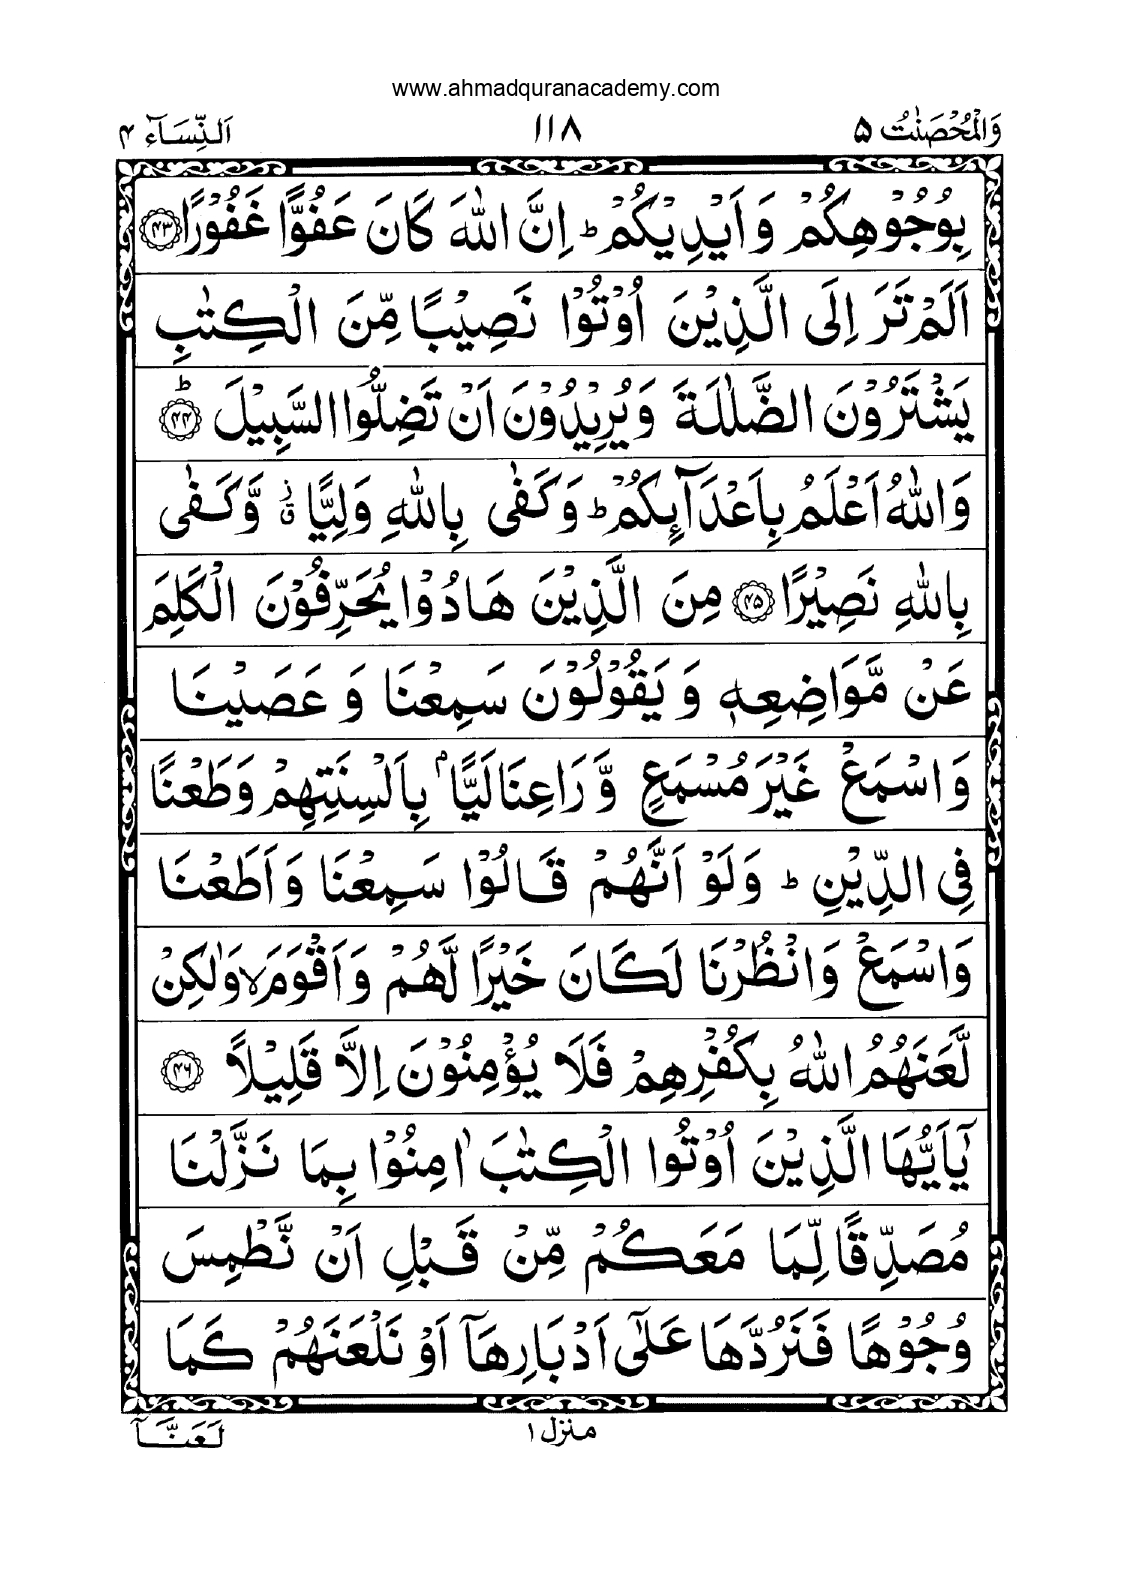 www.ahmadquranacademy.com
وَالْمُحْصَنٰتُ ۵ ١١٨ اَلنِّسَآء ۴
بِوُجُوْهِكُمْ وَ اَيْدِيْكُمْ ؕ اِنَّ اللّٰهَ كَانَ عَفُوًّا غَفُوْرًا ﴿۴۳﴾
اَلَمْ تَرَ اِلَى الَّذِيْنَ اُوْتُوْا نَصِيْبًا مِّنَ الْكِتٰبِ
يَشْتَرُوْنَ الضَّلٰلَةَ وَ يُرِيْدُوْنَ اَنْ تَضِلُّوا السَّبِيْلَ ﴿۴۴﴾ؕ
وَ اللّٰهُ اَعْلَمُ بِاَعْدَآىِٕكُمْ ؕ وَ كَفٰى بِاللّٰهِ وَلِيًّا ۗۙ وَّ كَفٰى
بِاللّٰهِ نَصِيْرًا ﴿۴۵﴾ مِنَ الَّذِيْنَ هَادُوْا يُحَرِّفُوْنَ الْكَلِمَ
عَنْ مَّوَاضِعِهٖ وَ يَقُوْلُوْنَ سَمِعْنَا وَ عَصَيْنَا
وَ اسْمَعْ غَيْرَ مُسْمَعٍ وَّ رَاعِنَا لَيًّۢا بِاَلْسِنَتِهِمْ وَ طَعْنًا
فِي الدِّيْنِ ؕ وَ لَوْ اَنَّهُمْ قَالُوْا سَمِعْنَا وَ اَطَعْنَا
وَ اسْمَعْ وَ انْظُرْنَا لَكَانَ خَيْرًا لَّهُمْ وَ اَقْوَمَ ۙ وَ لٰكِنْ
لَّعَنَهُمُ اللّٰهُ بِكُفْرِهِمْ فَلَا يُؤْمِنُوْنَ اِلَّا قَلِيْلًا ﴿۴۶﴾
يٰۤاَيُّهَا الَّذِيْنَ اُوْتُوا الْكِتٰبَ اٰمِنُوْا بِمَا نَزَّلْنَا
مُصَدِّقًا لِّمَا مَعَكُمْ مِّنْ قَبْلِ اَنْ نَّطْمِسَ
وُجُوْهًا فَنَرُدَّهَا عَلٰۤى اَدْبَارِهَاۤ اَوْ نَلْعَنَهُمْ كَمَا
منزل ١ لَعَنَّاۤ